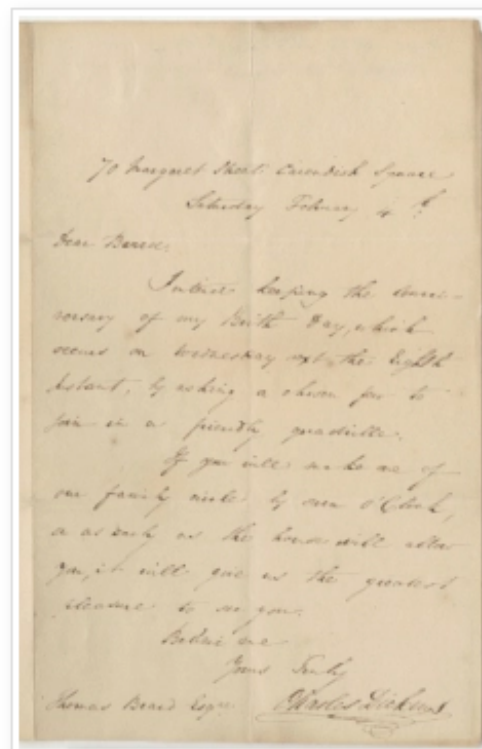 70 Margaret Street Cavendish Square
Saturday February 4th
Dear Beard.
I intend keeping the anni-
versary of my Birth Day, which
occurs on Wednesday next the Eighth
Instant, by asking a chosen few to
join in a friendly quadrille.
If you will make one of
our family circle by seven o'Clock,
or as early as the house will allow
you, it will give us the greatest
pleasure to see you.
Believe me
Yours Truly
Charles Dickens
Thomas Beard Esqre.